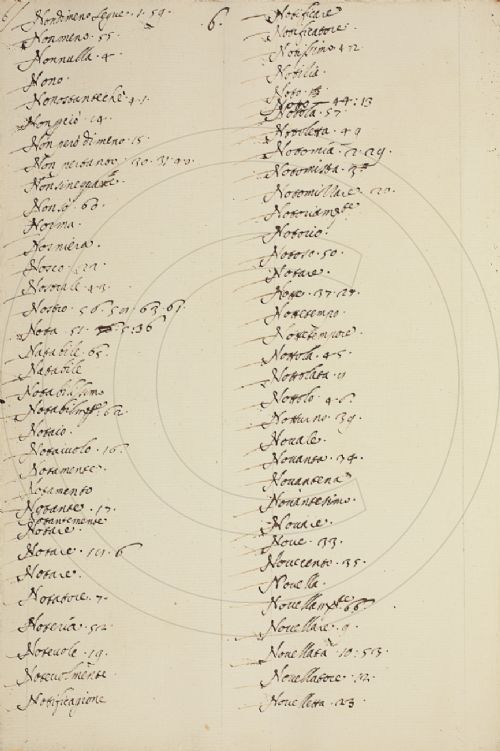 Nondimeno segue. 1. 59.
Nonmeno. 55.
Nonnulla. 4.
Nono.
Nonostanteche 41.
Nonpeiò. 14.
Non però di meno. 15.
Non pertanto. 30. 31. 40.
Nonso. 60.
Norma.
Norniera.
Nosco. 22.
Nostrale. 43.
Nostro. 56. 59. 63. 61.
Nota. 51. 5: 36
Natabile. 65.
Natabile
Notabilissimo
Notabilmte. 62.
Notaio.
Notaiuolo. 16.
Notamente.
Notamento
Notante. 17.
Notantemente
Notare.
Notare. 6
Notare.
Notatore. 7.
Noteria. 52.
Noteuole. 19.
Noteuolmente
Notificagione
6.
Notificare
Notificatore.
Notissimo 42.
Notitia.
Noto.
Noto 44: 13
Notola. 57.
Notoleta. 49
Notomia. 2. 29.
Notomista. 3
Notomizzare. 20.
Notoriamte
Notorio.
Notoso. 50.
Notare.
Notte. 37. 28.
Nottetempo
Nottetempore.
Nottola. 45.
Nottolata. 11
Nottolo. 46.
Notturno. 39.
Nouale.
Nouanta. 34.
Nouantena
Nouantesimo.
Nouare.
Noue. 33.
Nouecento. 35.
Nouella.
Nouellamte. 66.
Nouellare. 9.
Nouellata. 10: 53.
Nouellatore. 32.
Nouelletta. 23.